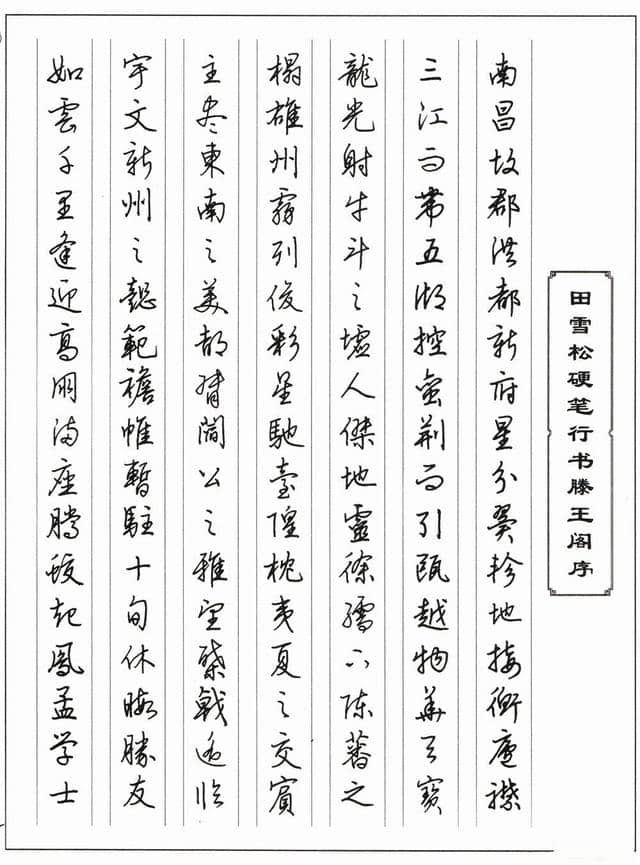 田雪松硬笔行书滕王阁序
南昌故郡洪都新府星分翼軫地接衡廬襟
三江而帶五湖控蛮荆而引甌越物華天寶
龍光射牛斗之墟人傑地靈徐孺下陳蕃之
榻雄州霧列俊彩星馳臺隍枕夷夏之交賓
主尽東南之美都督閻公之雅望棨戟遥临
宇文新州之懿範襜帷暫駐十旬休暇勝友
如雲千里逢迎高朋满座騰蛟起鳳孟学士